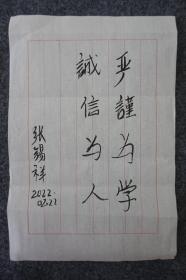 严謹为学
誠信为人
张锡祥
2022.
02.21